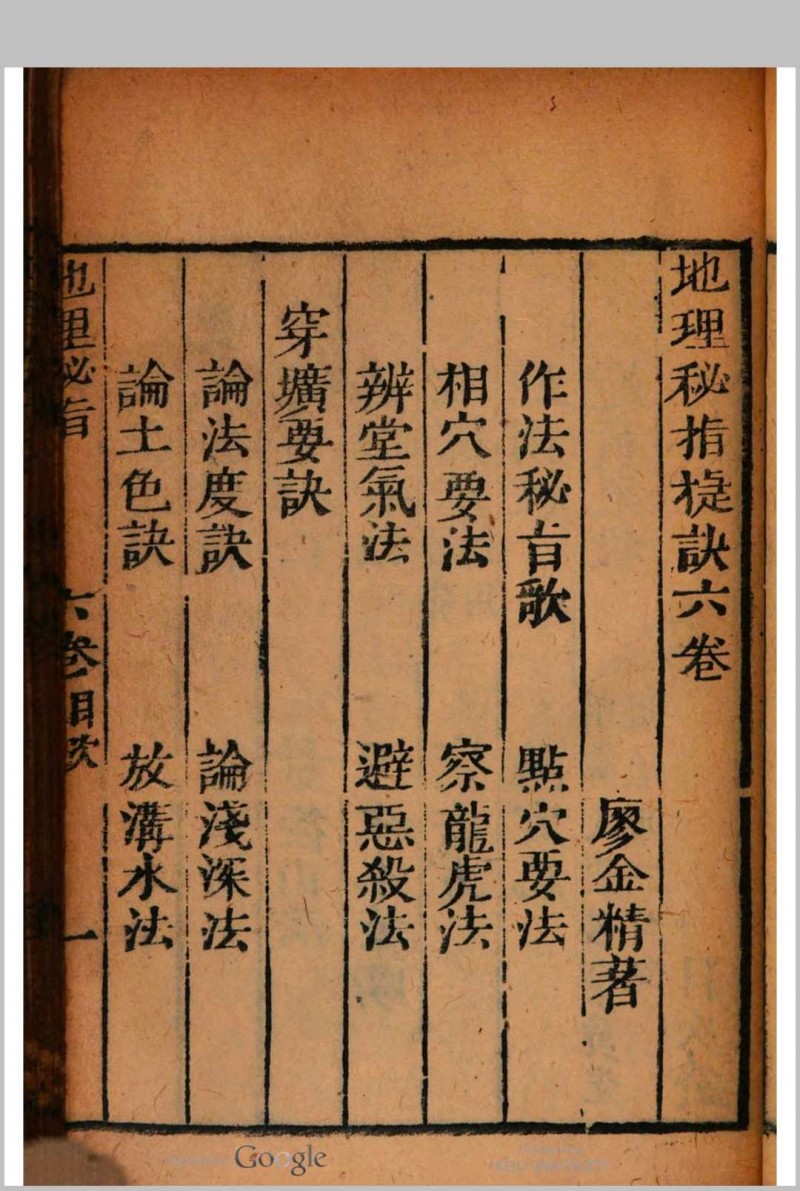 地理秘指㨗訣六卷
廖金精著
作法秘旨歌　點穴要法
相穴要法　察龍虎法
辨堂氣法　避惡殺法
穿壙要訣
論法度訣　論淺深法
論土色訣　放溝水法
地理秘旨　六卷目次　一
Google